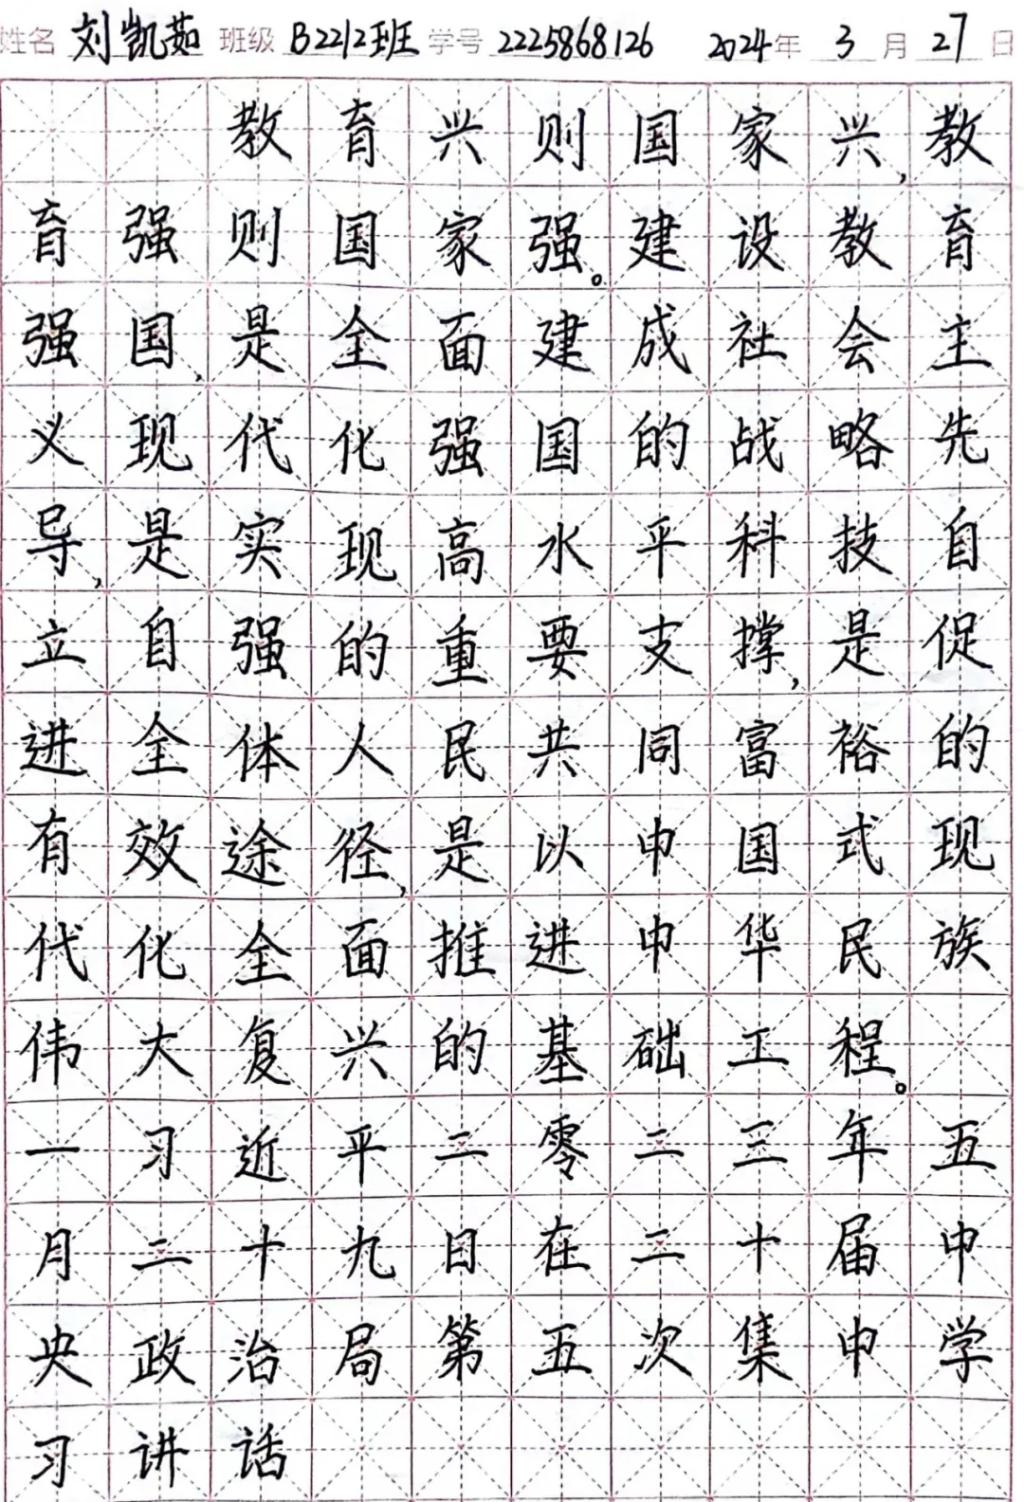 姓名 刘凯茹 班级 B2212班 学号 2225868126 2024年 3 月 27 日
教育兴则国家兴,教
育强则国家强。建设教育
强国,是全面建成社会主
义现代化强国的战略先
导,是实现高水平科技自
立自强的重要支撑,是促
进全体人民共同富裕的
有效途径,是以中国式现
代化全面推进中华民族
伟大复兴的基础工程。
一习近平二零二三年五
月二十九日在二十届中
央政治局第五次集中学
习讲话